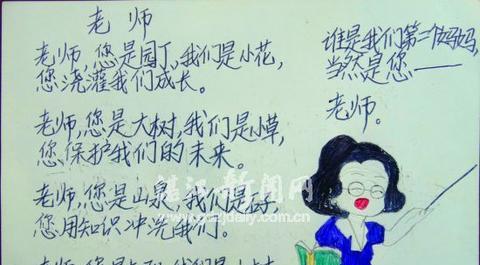 老师
老师,您是园丁,我们是小花,
您浇灌我们成长。
老师,您是大树,我们是小草,
您保护我们的未来。
老师,您是山泉,我们是
您用知识冲洗我们。
谁是我们第二个妈妈,
当然是您——
老师。
湛江新闻网
gdzjdaily.com.cn